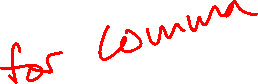 for comma